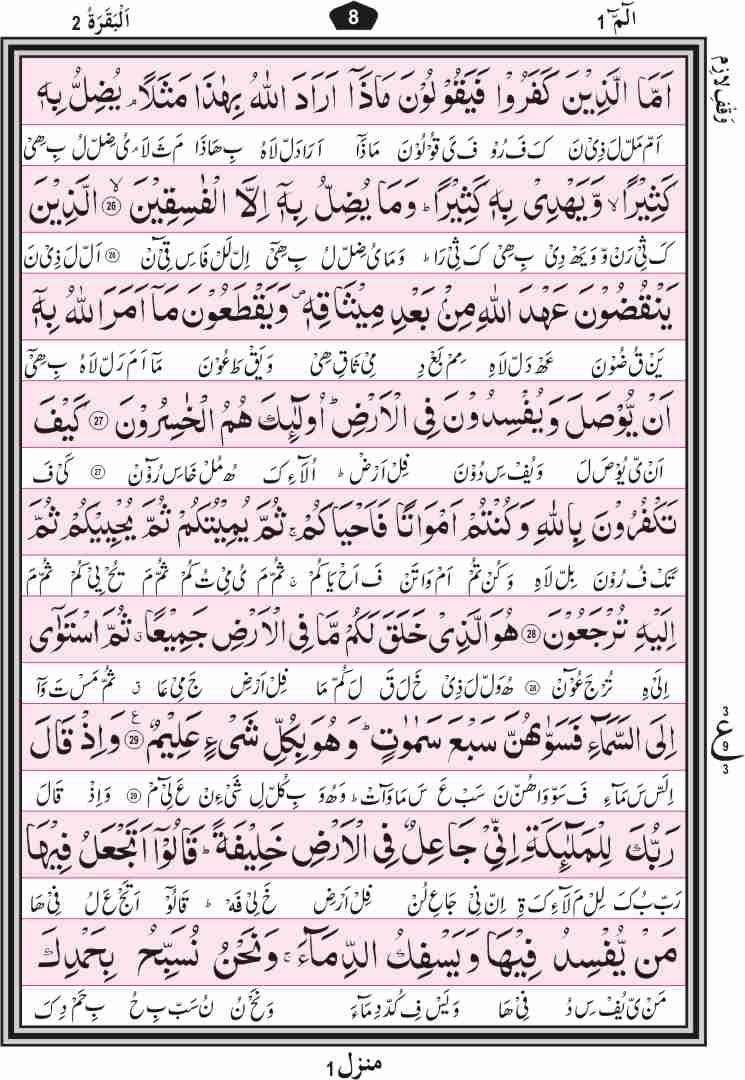 الٓمّٓ 1
8
اَلْبَقَرَةُ 2
وَقْفِ لَازِم
اَمَّا الَّذِيْنَ كَفَرُوْا فَيَقُوْلُوْنَ مَاذَاۤ اَرَادَ اللّٰهُ بِهٰذَا مَثَلًا ۘ يُضِلُّ بِهٖ
اَمّ مَلّ لَ ذِىْ نَ كَ فَ رُوْ فَ ىَ قُوْلُوْنَ مَاذَاۤ اَرَادَلّ لَاهُ بِ هَاذَا مَ ثَ لَا ۘ ىُ ضِلّ لُ بِ هِىْ
كَثِيْرًا ۙ وَّيَهْدِىْ بِهٖ كَثِيْرًا ؕ وَمَا يُضِلُّ بِهٖۤ اِلَّا الْفٰسِقِيْنَ ۙ ﴿26﴾ الَّذِيْنَ
كَ ثِىْ رَنْ وّ وَ يَهْ دِىْ بِ هِىْ كَ ثِىْ رَا ؕ وَ مَا ىُ ضِلّ لُ بِ هِىْۤ اِلّ لَلْ فَا سِ قِىْۤ نْ ﴿26﴾ اَلّ لَ ذِىْ نَ
يَنْقُضُوْنَ عَهْدَ اللّٰهِ مِنْۢ بَعْدِ مِيْثَاقِهٖ ۪ وَيَقْطَعُوْنَ مَاۤ اَمَرَ اللّٰهُ بِهٖۤ
يَنْ قُ ضُوْنَ عَهْ دَلّ لَاهِ مِمْ بَعْ دِ مِىْ ثَاقِ هِىْ وَ يَقْ طَ عُوْنَ مَاۤ اَمَ رَلّ لَاهُ بِ هِىْۤ
اَنْ يُّوْصَلَ وَيُفْسِدُوْنَ فِى الْاَرْضِ ؕ اُولٰٓئِكَ هُمُ الْخٰسِرُوْنَ ﴿27﴾ كَيْفَ
اَنْ ىّ يُوْصَ لَ وَ يُفْ سِ دُوْنَ فِلْ اَرْضْ ؕ اُلَآءِ كَ هُ مُلْ خَاسِ رُوْۤنْ ﴿27﴾ كَىْ فَ
تَكْفُرُوْنَ بِاللّٰهِ وَكُنْتُمْ اَمْوَاتًا فَاَحْيَاكُمْ ۚ ثُمَّ يُمِيْتُكُمْ ثُمَّ يُحْيِيْكُمْ ثُمَّ
تَكْ فُ رُوْنَ بِلّ لَاهِ وَ كُنْ تُمْ اَمْ وَاتَنْ فَ اَحْ يَاكُمْ ۚ ثُمّ مَ ىُ مِىْ تُ كُمْ ثُمّ مَ يُحْ يِىْ كُمْ ثُمّ مَ
اِلَيْهِ تُرْجَعُوْنَ ﴿28﴾ هُوَ الَّذِىْ خَلَقَ لَكُمْ مَّا فِى الْاَرْضِ جَمِيْعًا ۗ ثُمَّ اسْتَوٰۤى
اِلَىْ هِ تُرْجَ عُوْۤنْ ﴿28﴾ هُ وَلّ لَ ذِىْ خَ لَ قَ لَ كُمْ مَا فِلْ اَرْضِ جَ مِىْ عَا ۗ ثُمّ مَسْ تَ وَاۤ
اِلَى السَّمَآءِ فَسَوّٰىهُنَّ سَبْعَ سَمٰوٰتٍ ؕ وَهُوَ بِكُلِّ شَىْءٍ عَلِيْمٌ ﴿29﴾ وَاِذْ قَالَ
اِلَسّ سَ مَآءِ فَ سَوّ وَا هُنّ نَ سَبْ عَ سَ مَا وَاتْ ؕ وَ هُ وَ بِ كُلّ لِ شَىْ ءِنْ عَ لِىْۤ مْ ﴿29﴾ وَ اِذْ قَالَ
ع
3
9
3
رَبُّكَ لِلْمَلٰٓئِكَةِ اِنِّىْ جَاعِلٌ فِى الْاَرْضِ خَلِيْفَةً ؕ قَالُوْۤا اَتَجْعَلُ فِيْهَا
رَبّ بُ كَ لِلْ مَ لَآءِ كَ ةِ اِنّ نِىْ جَاعِ لُنْ فِلْ اَرْضِ خَ لِىْ فَهْ ؕ قَالُوْۤ اَتَجْ عَ لُ فِىْ هَا
مَنْ يُّفْسِدُ فِيْهَا وَيَسْفِكُ الدِّمَآءَ ۚ وَنَحْنُ نُسَبِّحُ بِحَمْدِكَ
مَنْ ىّ يُفْ سِ دُ فِىْ هَا وَ يَسْ فِ كُدّ دِمَآءْ وَ نَحْ نُ نُ سَبّ بِ حُ بِ حَمْ دِ كَ
منزل 1